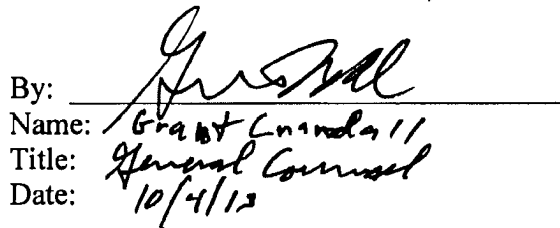 By:
Name: Grant Crandall
Title: General Counsel
Date: 10/4/13